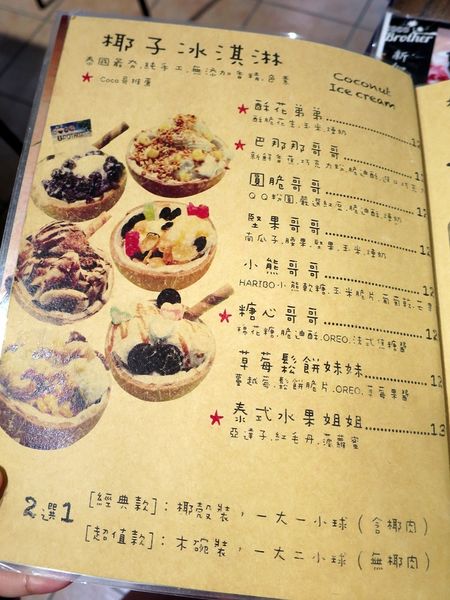 椰子冰淇淋
Coconut
Ice cream
泰國最夯,純手工,無添加香精,色素
★ Coco哥推薦
Brother
新
★ 酥花弟弟 12
酥脆花生,玉米,煉奶
★ 巴那那哥哥 12
新鮮香蕉,巧克力粉,脆迪酥,淋巧克力
圓脆哥哥 12
QQ粉圓,嚴選紅豆,脆迪酥,煉奶
堅果哥哥 12
南瓜子,腰果,堅果,玉米,煉奶
小熊哥哥 12
HARIBO小熊軟糖,玉米脆片,葡萄乾,芒果
★ 糖心哥哥 12
棉花糖,脆迪酥,OREO,法式焦糖醬
草莓鬆餅妹妹 12
蔓越莓,鬆餅脆片,OREO,草莓果醬
★ 泰式水果姐姐 13
亞達子,紅毛丹,菠蘿蜜
2選1
[經典款]:椰殼裝,一大一小球(含椰肉)
[超值款]:木碗裝,一大二小球(無椰肉)